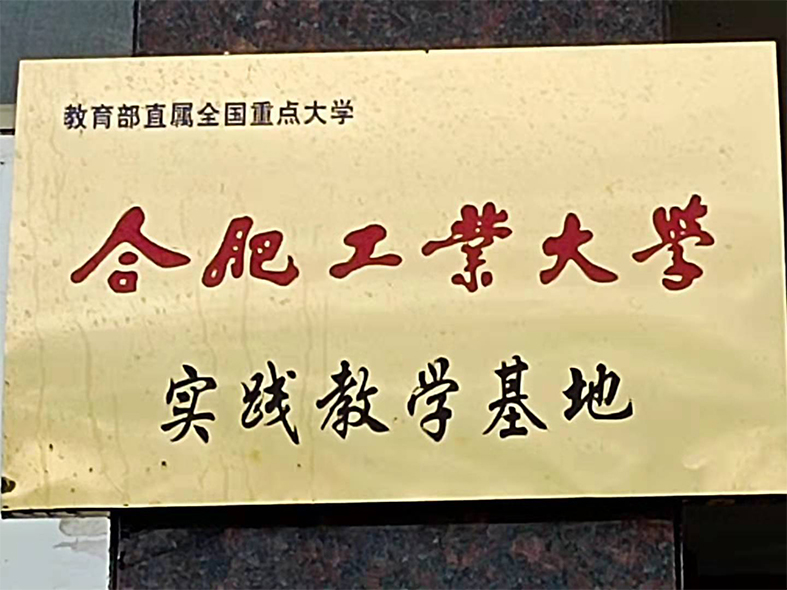 教育部直属全国重点大学
合肥工業大學
实践教学基地